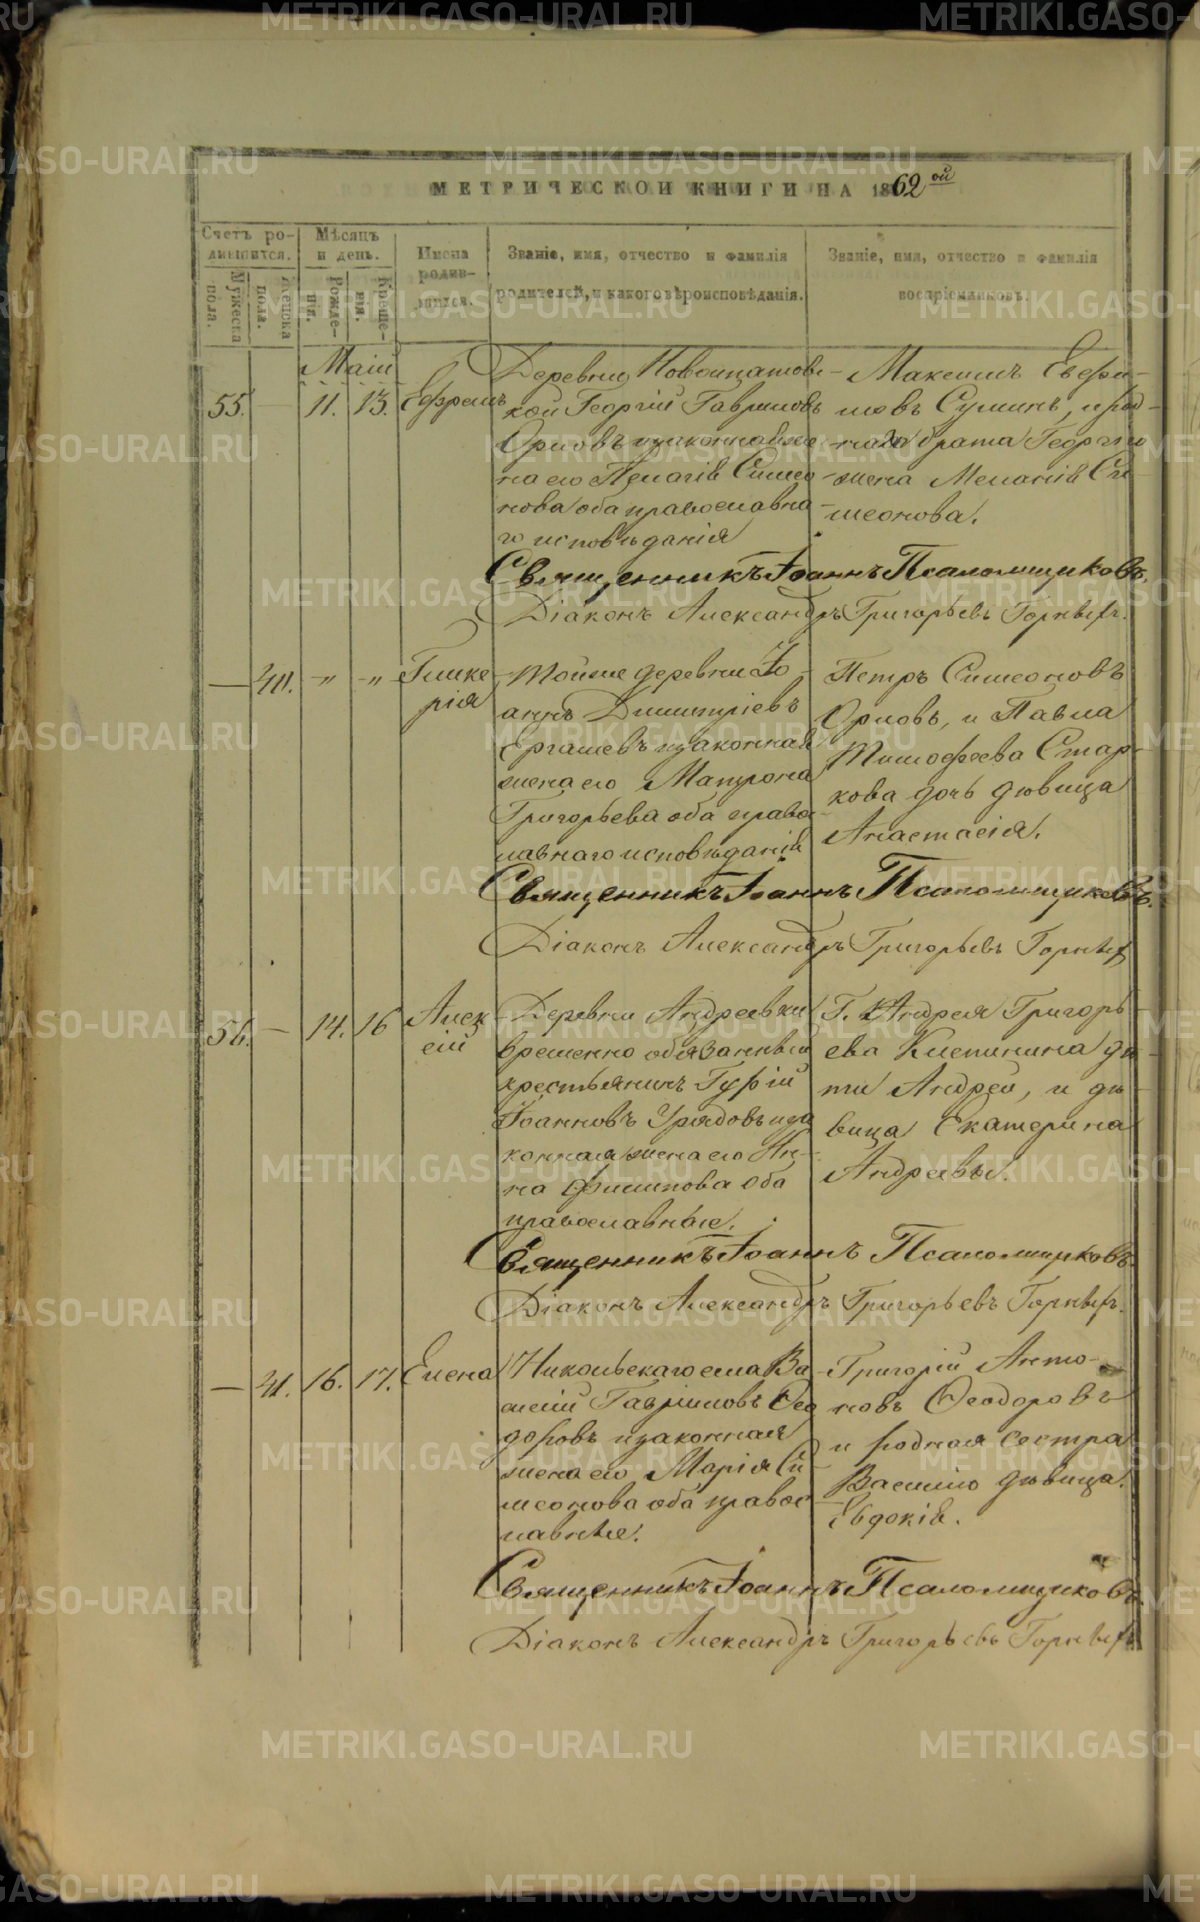 МЕТРИЧЕСКОЙ КНИГИ НА 1862ой
Счетъ родившихся.
Мужеска пола.
Женска пола.
Мѣсяцъ и день.
Рожденія.
Крещенія.
Имена родившихся.
Званіе, имя, отчество и фамилія
родителей, и какого вѣроисповѣданія.
Званіе, имя, отчество и фамилія
воспріемниковъ.
Маій
55. — 11. 13. Ефремъ
Деревни Новоипатовс-
кой Георгій Гавриловъ
Орловъ и законная же
на его Пелагія Симео
нова оба православна-
го исповѣданія
Максимъ Евфи-
мовъ Суминъ, и род-
наго брата Георгія
жена Меланія Си-
меонова.
Священникъ Іоаннъ Псаломщиковъ.
Діаконъ Александръ Григорьевъ Горныхъ.
— 40. -"- -"- Глике
рія
Тойже деревни Іо-
аннъ Димитріевъ
Ергашевъ и законная
жена его Матрона
Григорьева оба право
лавнаго исповѣданія
Петръ Симеоновъ
Орловъ, и Павла
Тимофеева Стар-
кова дочь дѣвица
Анастасія.
Священникъ Іоаннъ Псаломщиковъ.
Діаконъ Александръ Григорьевъ Горныхъ
56. — 14. 16 Алек
сій
Деревни Андреевки
временно обязанный
крестьянинъ Гурій
Іоанновъ Урядовъ и за
конная жена его Ан-
на Филипова оба
православные.
Г. Андрея Григорь-
ева Клепинина дѣ-
ти Андрей, и дѣ-
вица Екатерина
Андреевы.
Священникъ Іоаннъ Псаломщиковъ.
Діаконъ Александръ Григорьевъ Горныхъ.
— 41. 16. 17. Елена
Никольскаго села Ва-
силій Гавриловъ Ѳео
доровъ и законная
жена его Марія Си
меонова оба правос-
лавные.
Григорій Анто-
новъ Ѳеодоровъ
и родная сестра
Василію дѣвица
Евдокія.
Священникъ Іоаннъ Псаломщиковъ.
Діаконъ Александръ Григорьевъ Горныхъ
METRIKI.GASO-URAL.RU